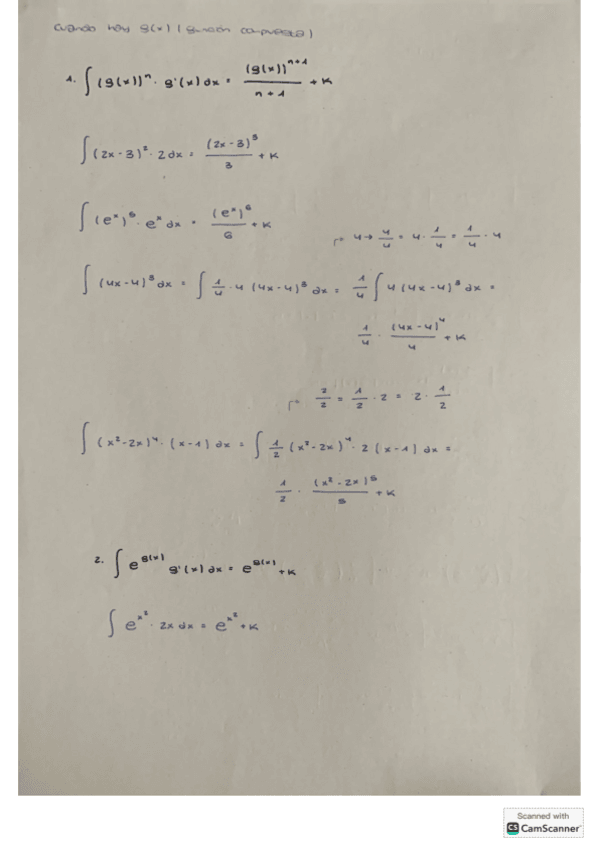 Cuando hay g(x) (función compuesta)
1. ∫ (g(x))ⁿ · g'(x) dx = (g(x))ⁿ⁺¹ / n+1 + K
∫ (2x-3)² · 2 dx = (2x-3)³ / 3 + K
∫ (eˣ)⁵ · eˣ dx = (eˣ)⁶ / 6 + K
4 → 4/4 = 4 · 1/4 = 1/4 · 4
∫ (4x-4)³ dx = ∫ 1/4 · 4 (4x-4)³ dx = 1/4 ∫ 4 (4x-4)³ dx =
1/4 · (4x-4)⁴ / 4 + K
2/2 = 1/2 · 2 = 2 · 1/2
∫ (x²-2x)⁴ · (x-1) dx = ∫ 1/2 (x²-2x)⁴ · 2 (x-1) dx =
1/2 · (x²-2x)⁵ / 5 + K
2. ∫ e^g(x) g'(x) dx = e^g(x) + K
∫ e^x² · 2x dx = e^x² + K
Scanned with
CS CamScanner